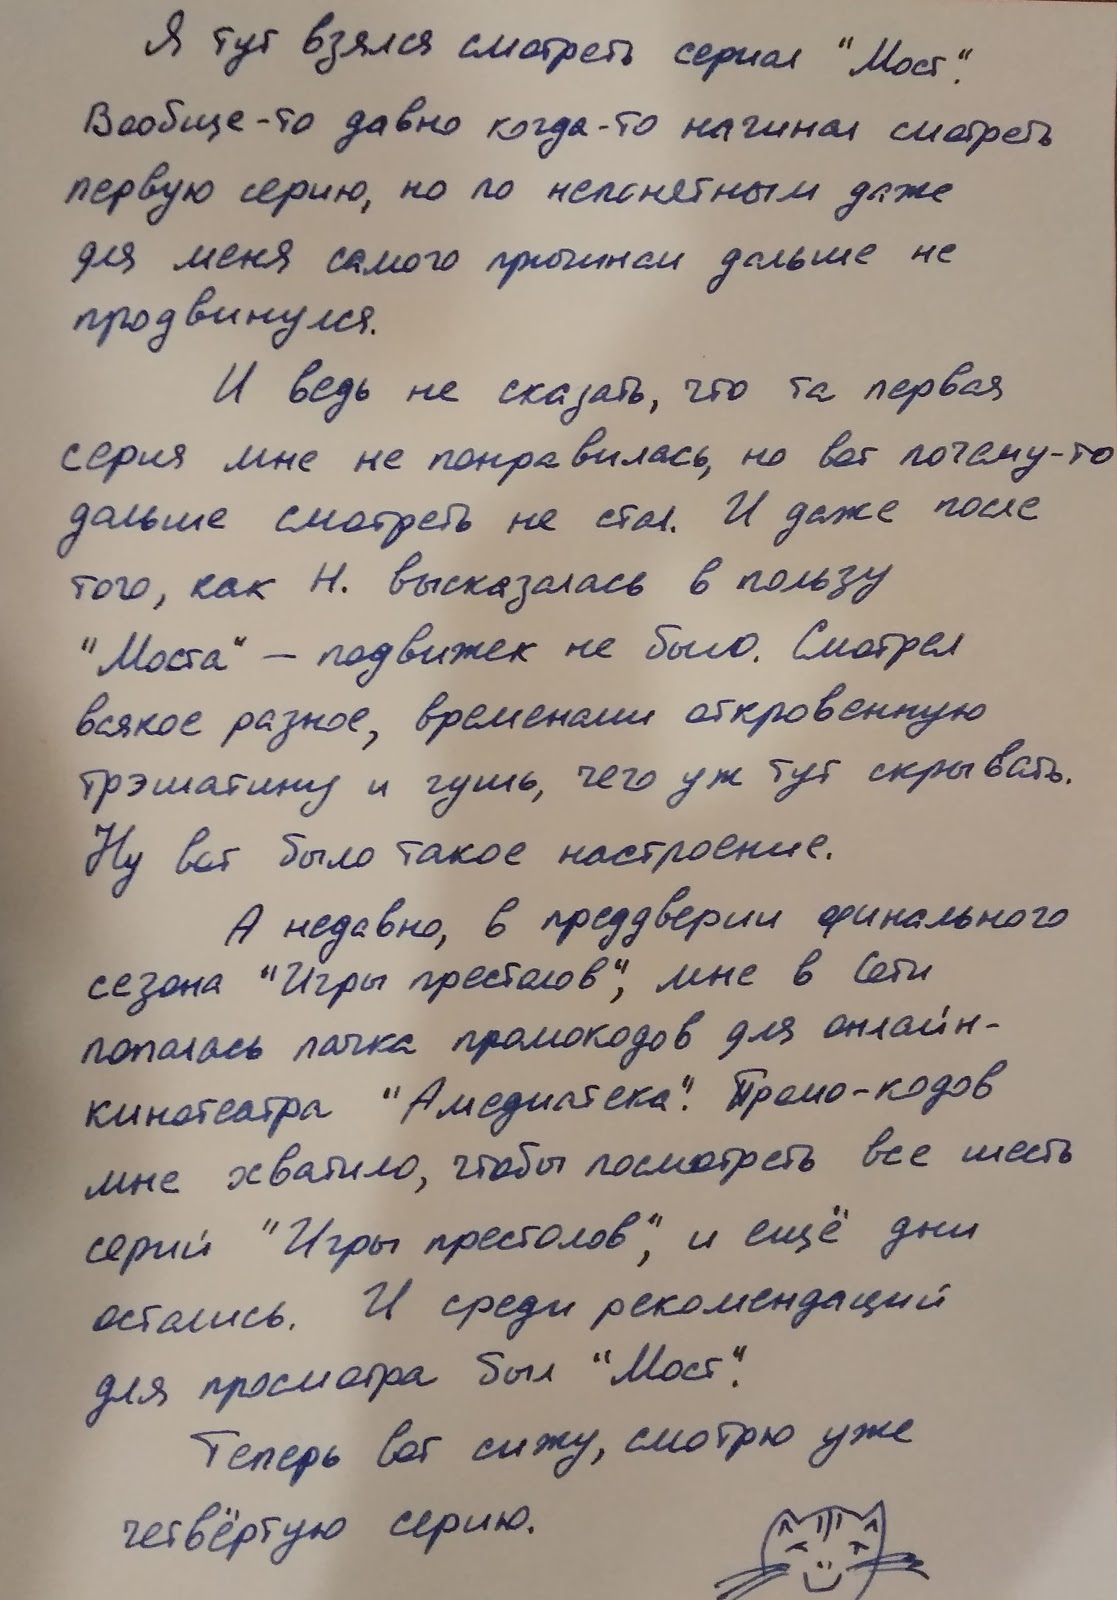 Я тут взялся смотреть сериал "Мост".
Вообще-то давно когда-то начинал смотреть
первую серию, но по непонятным даже
для меня самого причинам дальше не
продвинулся.
И ведь не сказать, что та первая
серия мне не понравилась, но вот почему-то
дальше смотреть не стал. И даже после
того, как Н. высказалась в пользу
"Моста" – подвижек не было. Смотрел
всякое разное, временами откровенную
трэшатину и чушь, чего уж тут скрывать.
Ну вот было такое настроение.
А недавно, в преддверии финального
сезона "Игры престолов", мне в Сети
попалась пачка промокодов для онлайн-
кинотеатра "Амедиатека". Промо-кодов
мне хватило, чтобы посмотреть все шесть
серий "Игры престолов", и ещё дни
остались. И среди рекомендаций
для просмотра был "Мост".
Теперь вот сижу, смотрю уже
четвёртую серию.